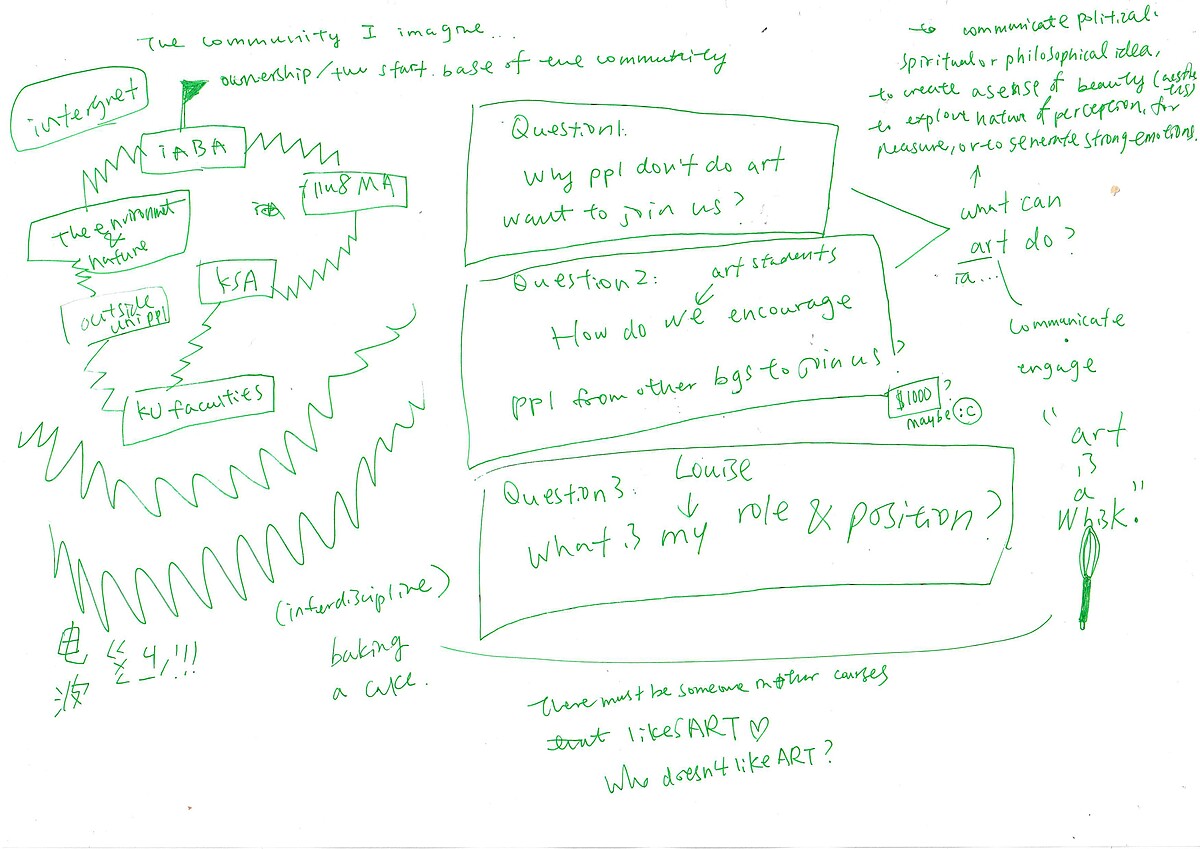 The community I imagine...
ownership/the start. base of the community
intergnet
iABA
illu8 MA
The environmet
&
nature
KSA
outside
uni ppl
KU faculties
电波
(interdiscipline)
baking
a cake.
Question1.
Why ppl don't do art
want to join us?
Question2:
art students
How do we encourage
ppl from other bgs to join us?
$1000 ?
maybe :c
Question3:
Louise
What is my role & position?
There must be someone in other courses
that likes ART ♡
Who doesn't like ART?
to communicate political.
spiritual or philosophical idea,
to create a sense of beauty (aesthetics)
to explore nature of perception, for
pleasure, or to generate strong emotions.
what can
art do?
ia...
communicate
engage
"art
is
a
whisk."